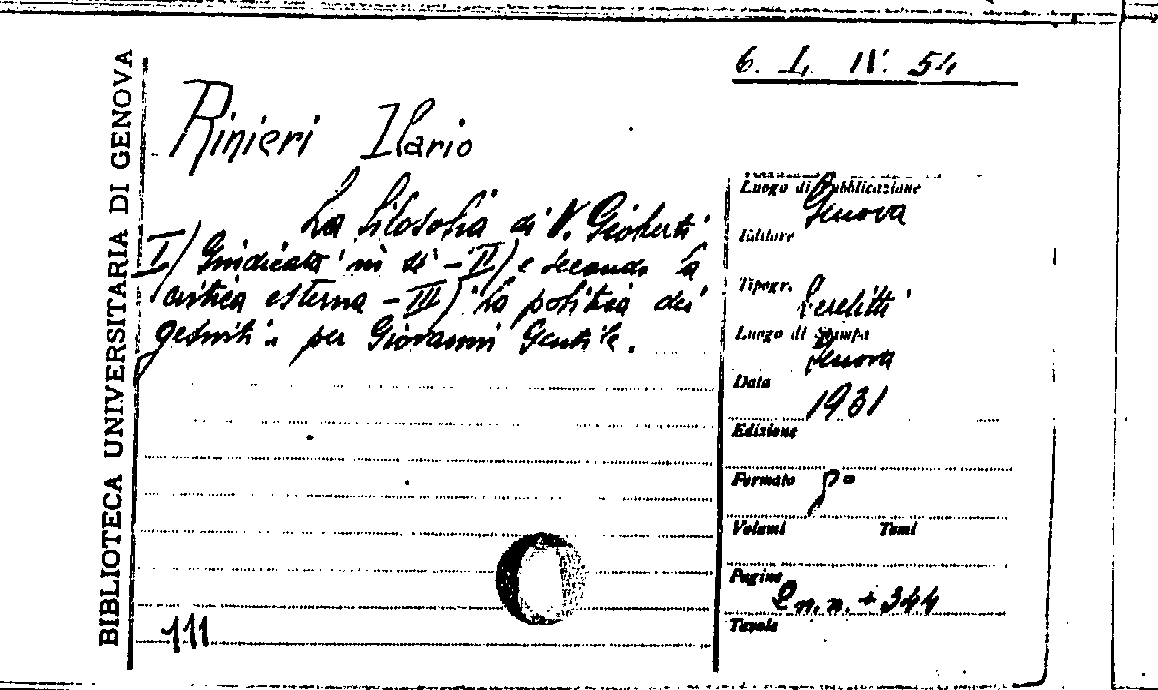 BIBLIOTECA UNIVERSITARIA DI GENOVA
6. I. IV. 54
Rinieri Ilario
La filosofia di V. Gioberti
I) Giudicata in sè - II) e secondo la
critica esterna - III) La politica dei
gesuiti. per Giovanni Gentile.
111
Luogo di Pubblicazione
Genova
Editore
Tipogr.
Luogo di Stampa
Genova
Data
1931
Edizione
Formato 8°
Volumi Tomi
Pagine
2 n.n. + 344
Tavole